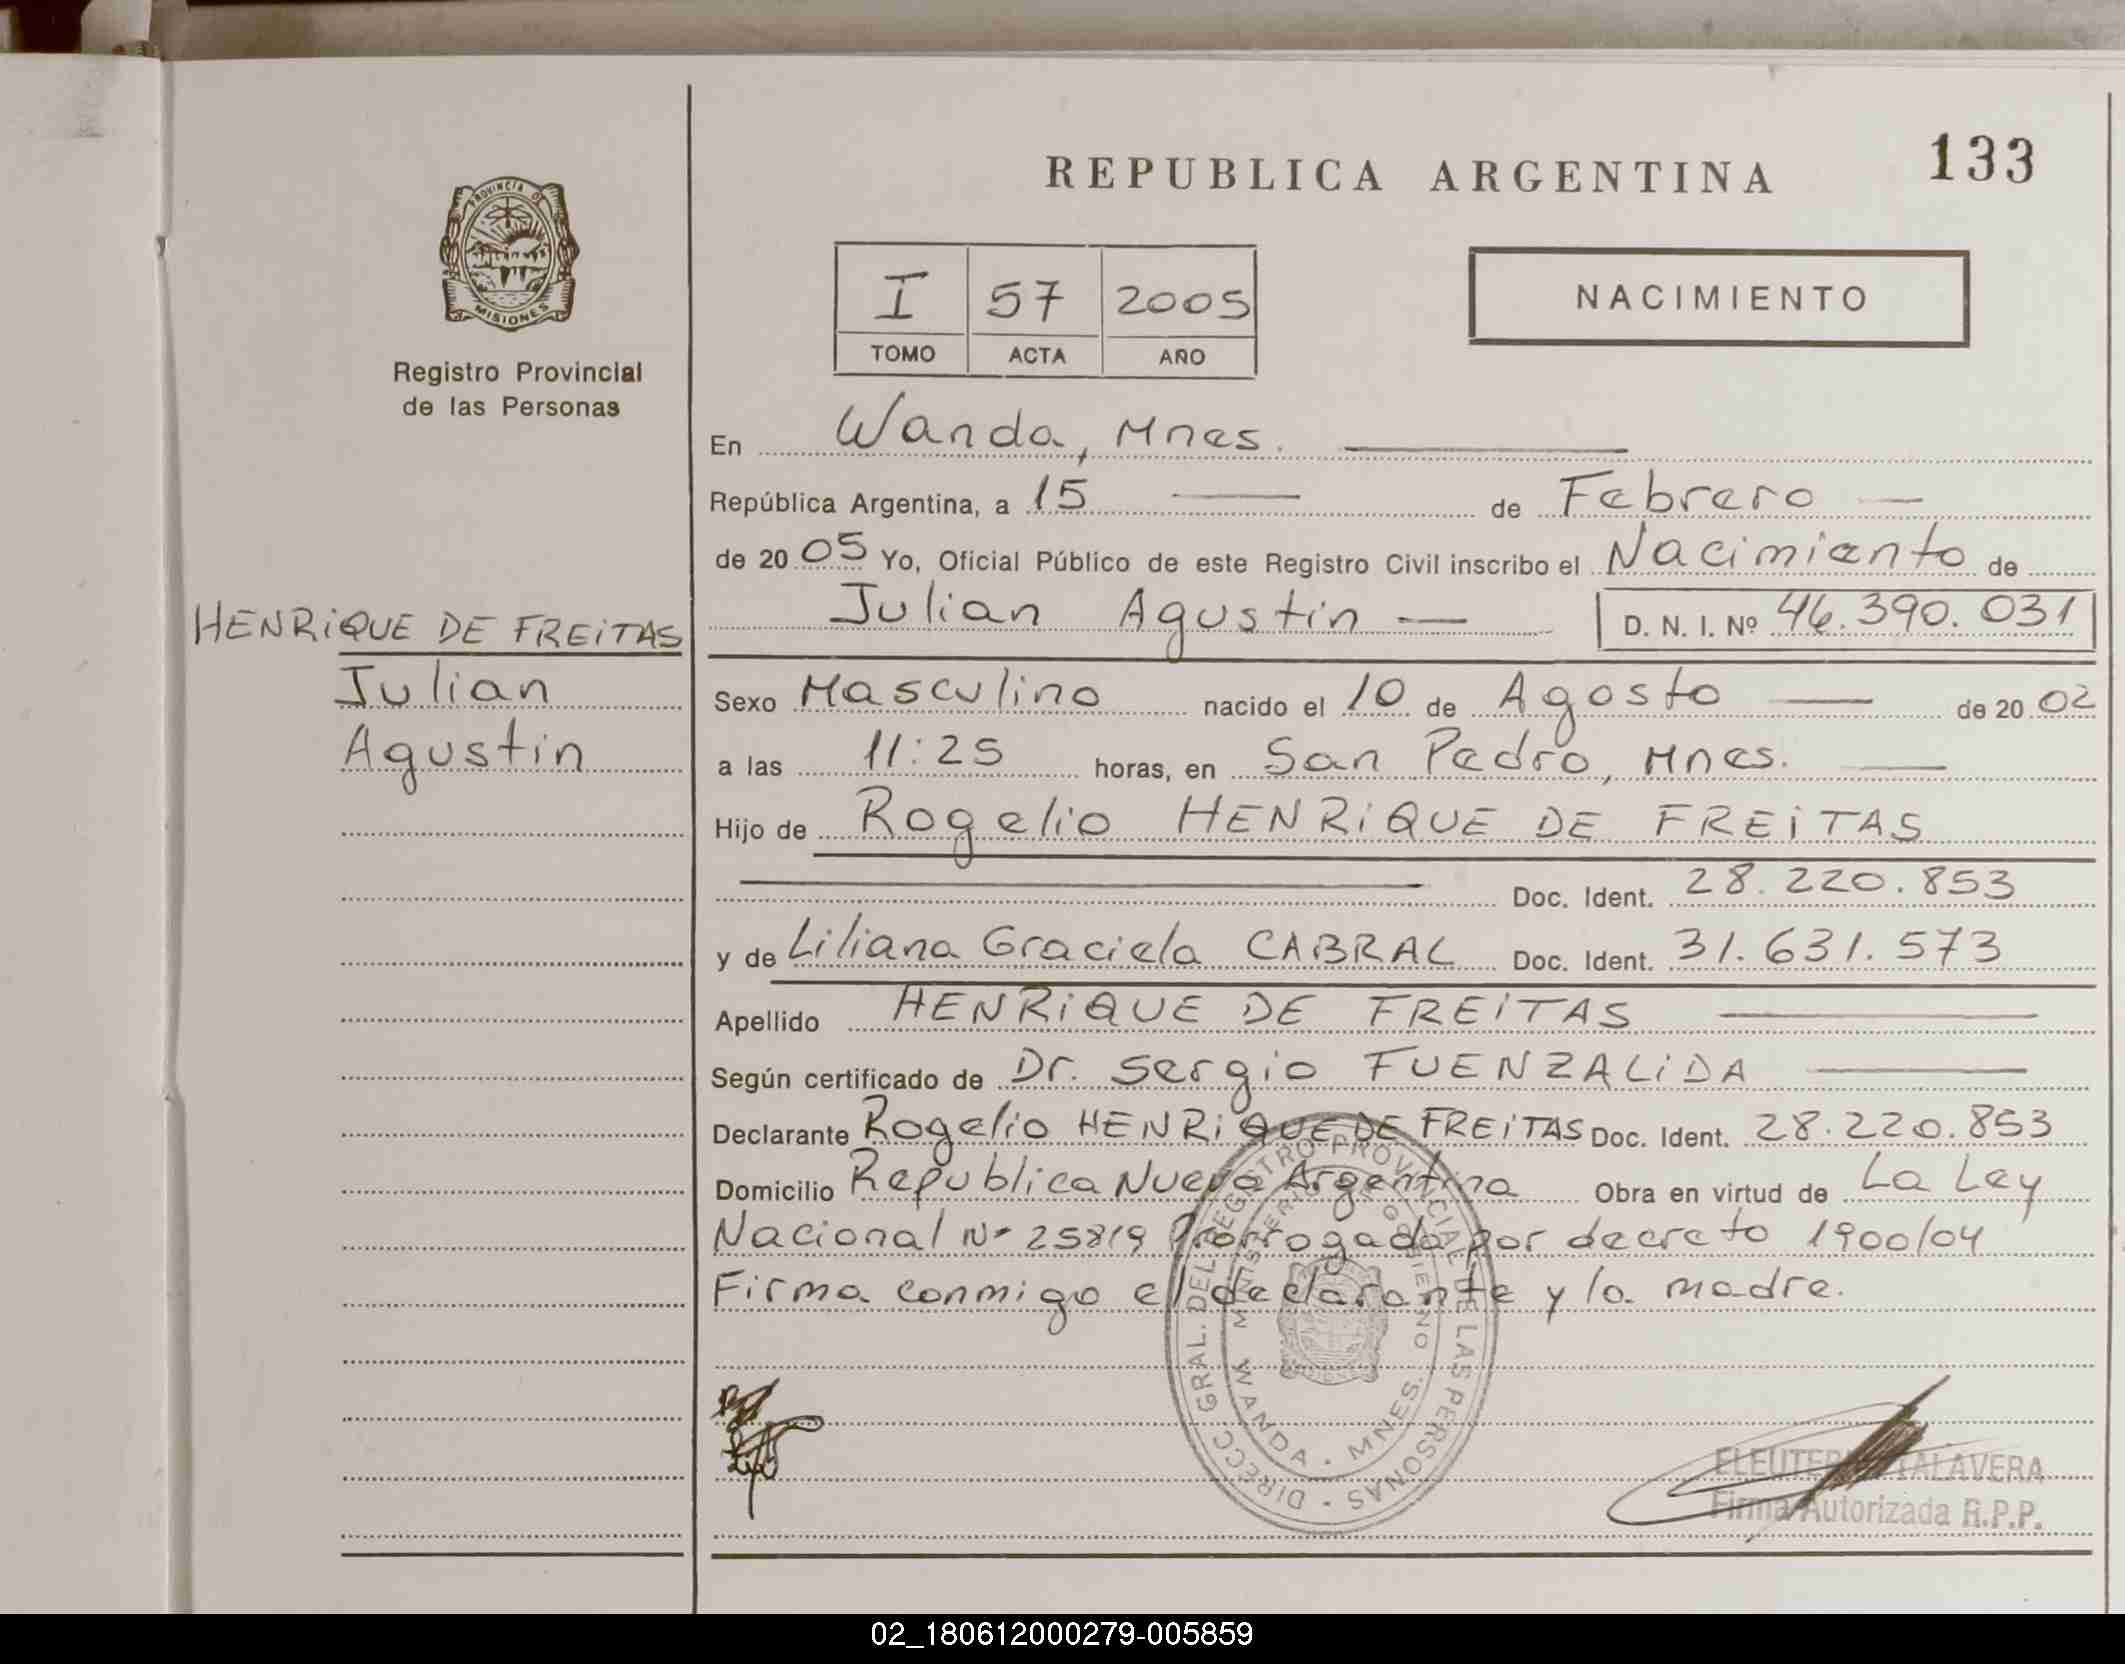 REPUBLICA ARGENTINA
133
PROVINCIA DE
MISIONES
Registro Provincial
de las Personas
I 57 2005
TOMO ACTA AÑO
NACIMIENTO
En Wanda, Mnes.
República Argentina, a 15 de Febrero
de 2005 Yo, Oficial Público de este Registro Civil inscribo el Nacimiento de
Julian Agustin D. N. I. Nº 46.390.031
HENRIQUE DE FREITAS
Julian
Agustin
Sexo Masculino nacido el 10 de Agosto de 2002
a las 11:25 horas, en San Pedro, Mnes.
Hijo de Rogelio HENRIQUE DE FREITAS
Doc. Ident. 28.220.853
y de Liliana Graciela CABRAL Doc. Ident. 31.631.573
Apellido HENRIQUE DE FREITAS
Según certificado de Dr. Sergio FUENZALIDA
Declarante Rogelio HENRIQUE DE FREITAS Doc. Ident. 28.220.853
Domicilio Republica Nueva Argentina Obra en virtud de La Ley
Nacional Nº 25819 Prorrogada por decreto 1900/04
Firma conmigo el declarante y la madre.
DIRECC GRAL. DEL REGISTRO PROVINCIAL DE LAS PERSONAS
MINISTERIO DE GOBIERNO
WANDA - MNES.
TALAVERA
Firma Autorizada R.P.P.
02_180612000279-005859